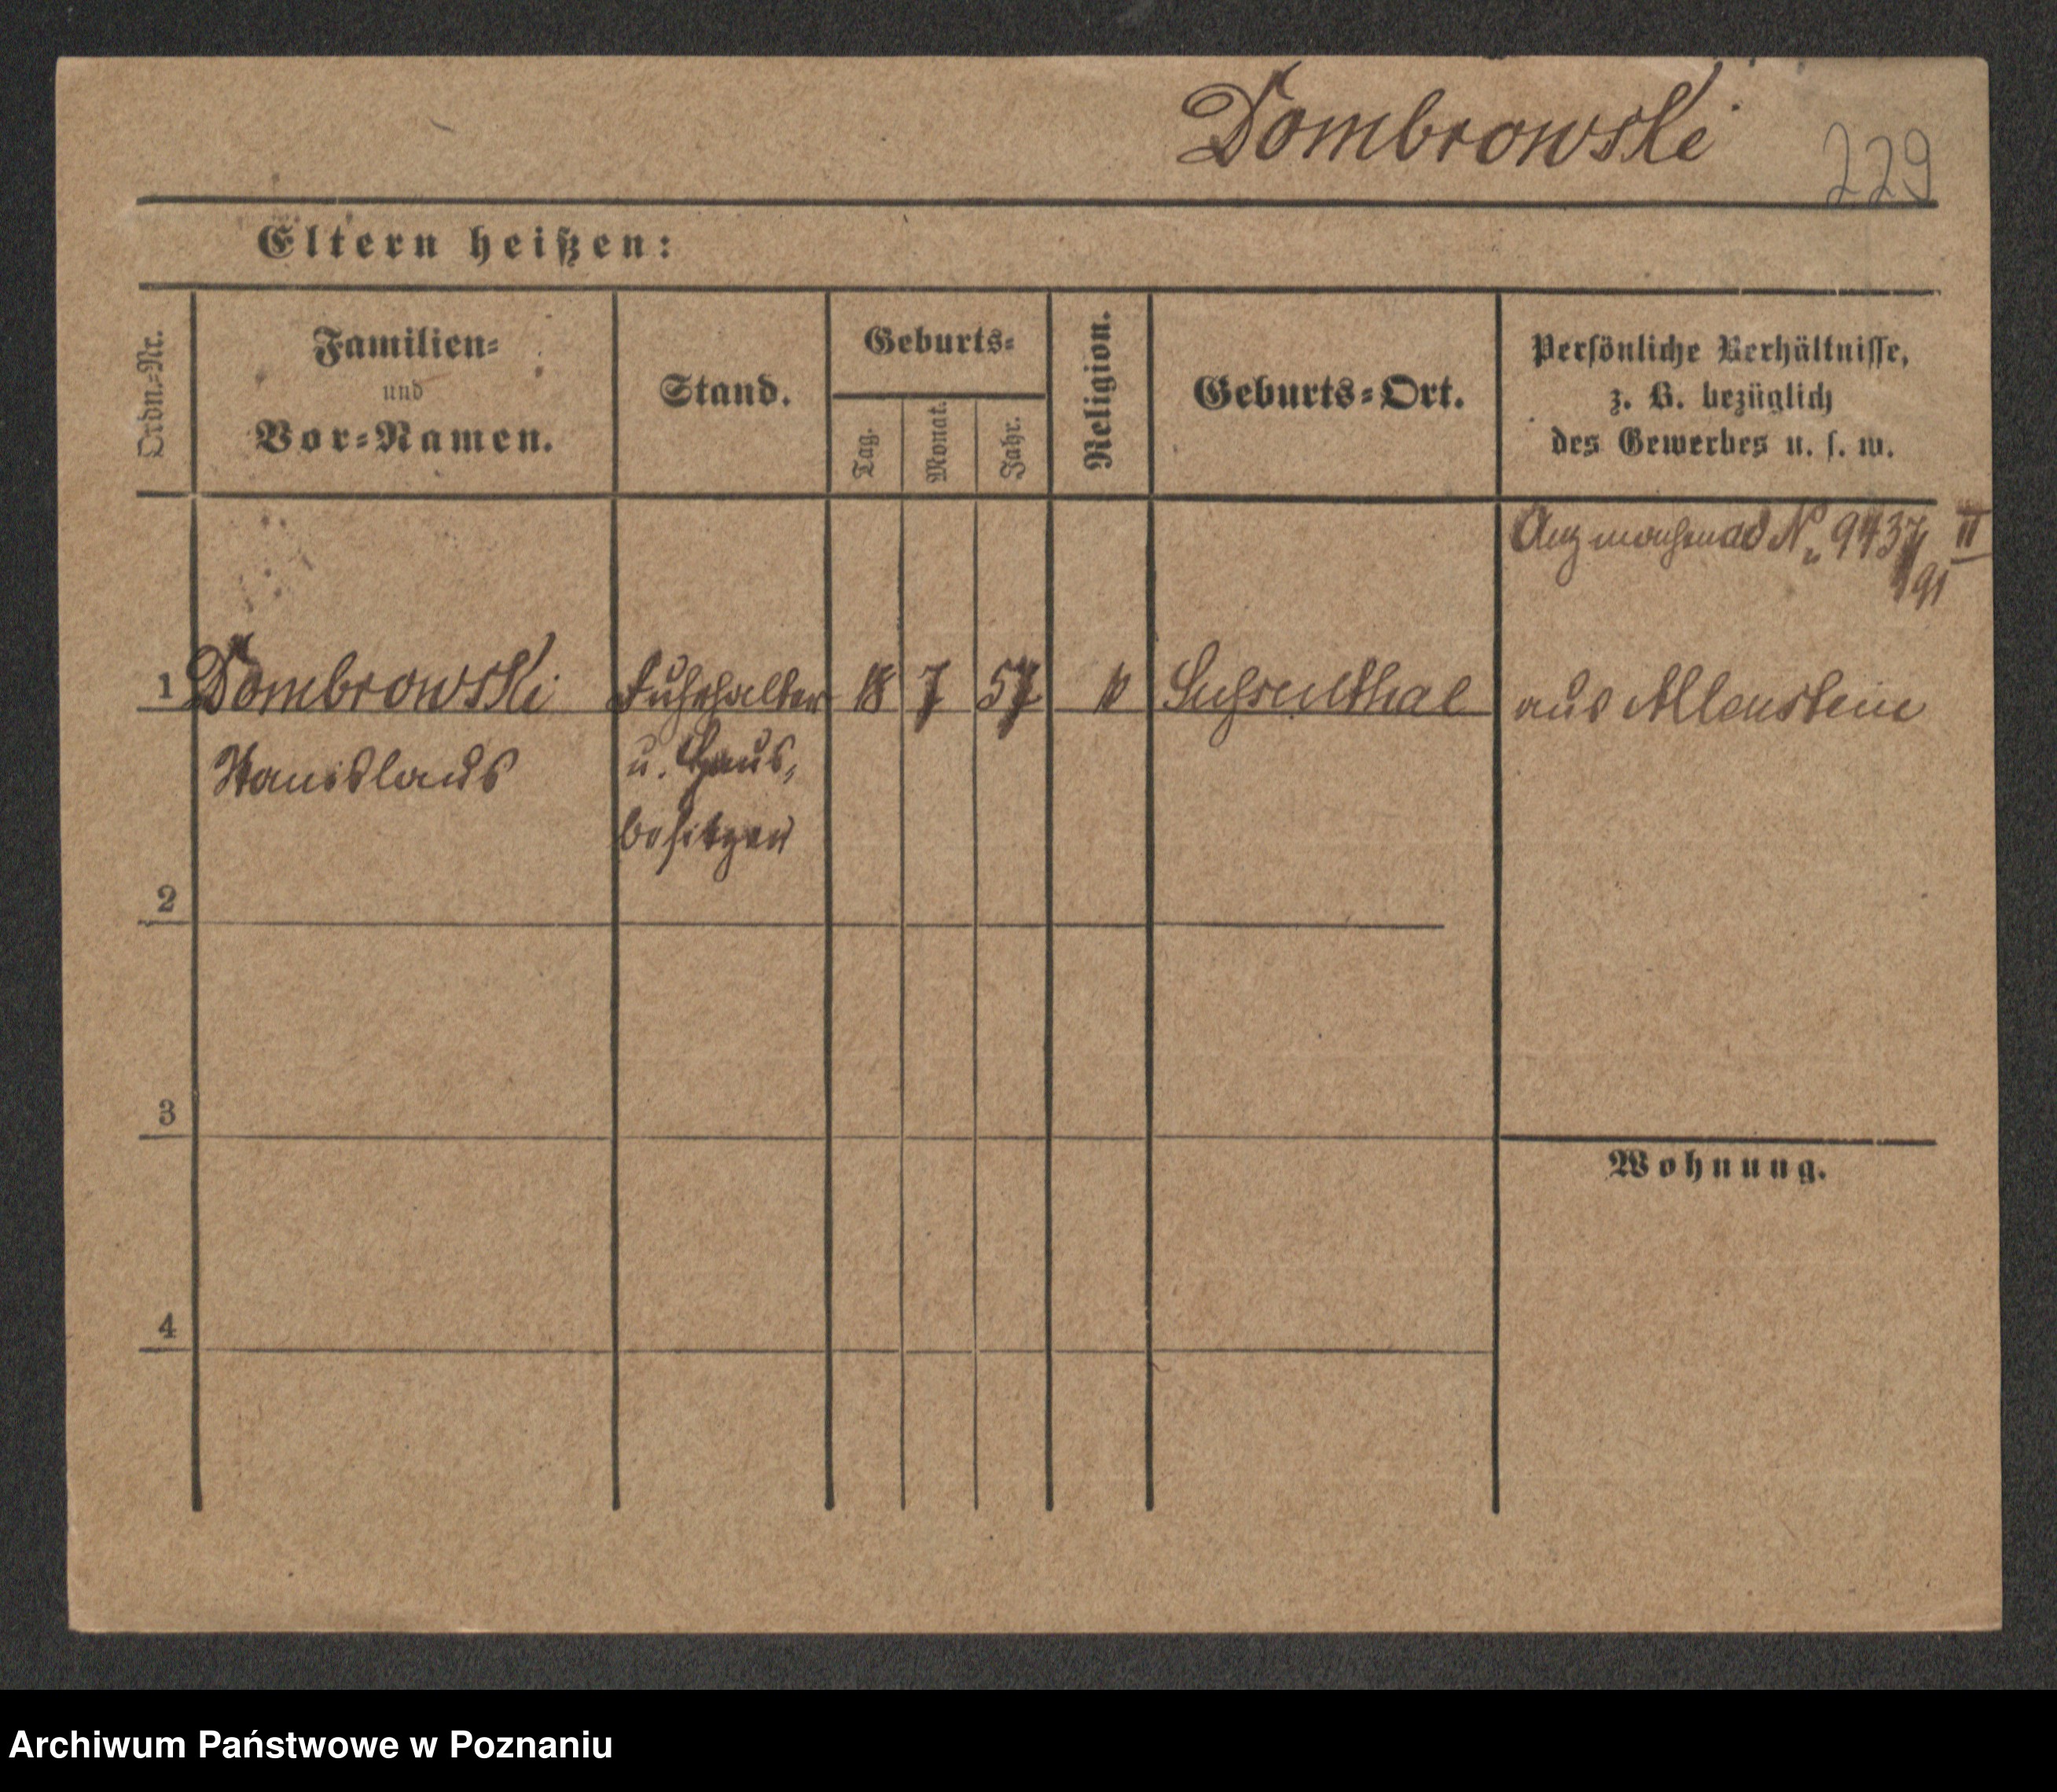 Dombrowski 229
Eltern heißen:
Ordn.=Nr.
Familien=
und
Vor=Namen.
Stand.
Geburts=
Tag.
Monat.
Jahr.
Religion.
Geburts=Ort.
Persönliche Verhältnisse,
z. B. bezüglich
des Gewerbes u. s. w.
ad No 9437/91 II
1 Dombrowski Fuhrhalter 18 7 57 aus Allenstein
Stanislaus u. Haus-
besitzer
2
3
Wohnung.
4
Archiwum Państwowe w Poznaniu